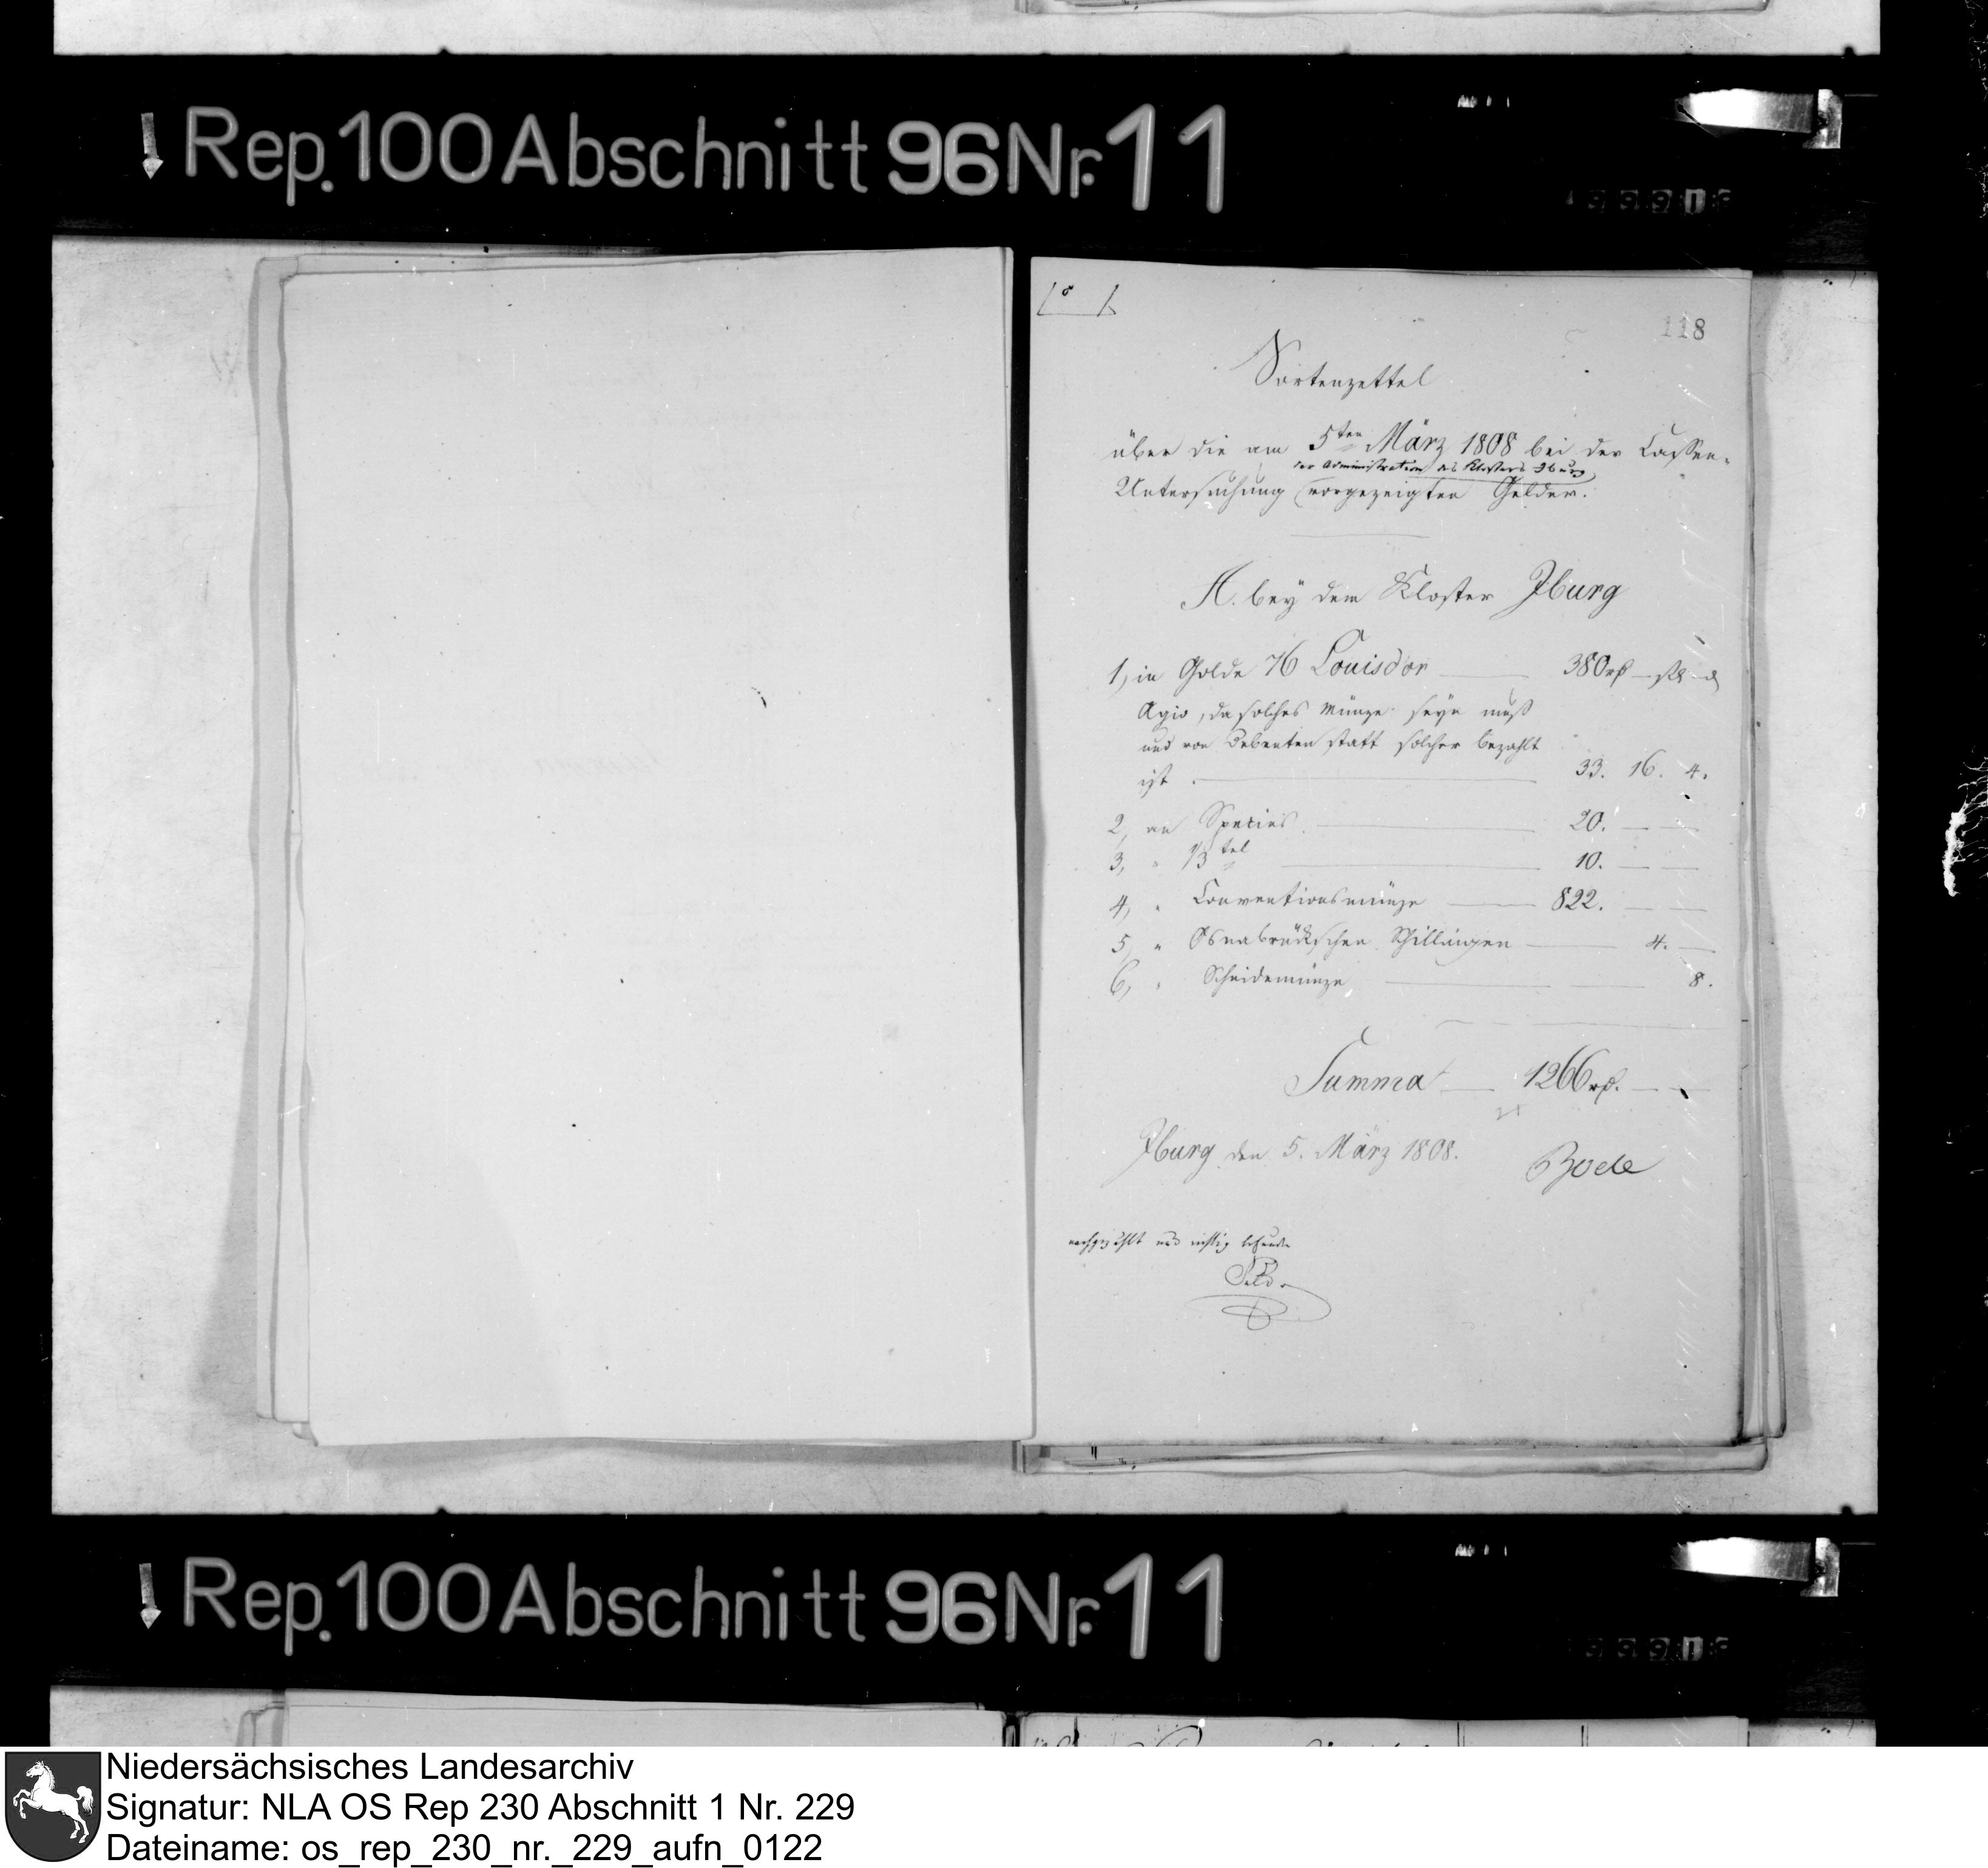 Rep. 100 Abschnitt 96 Nr. 11
118
Sortenzettel
über die am 5ten März 1808 bei der Cassen-
der Administration des Klosters Iburg
Untersuchung vorgezeigten Gelder.
A. bey dem Kloster Iburg
1, in Golde 76 Louisdor 380 rthl — ß — d
Agio, da solches Münze seyn muß
und von Debenten statt solcher bezahlt
ist 33. 16. 4.
2, an Species 20. — —
3, " 1/3 tel 10. — —
4, " Conventionsmünze 822. — —
5, " Osnabrückschen Schillingen — 4. —
6, " Scheidemünze — — 8.
Summa — 1266 rthl. — —
Iburg den 5. März 1808. Bode
nachgezählt und richtig befunden
Rep. 100 Abschnitt 96 Nr. 11
Niedersächsisches Landesarchiv
Signatur: NLA OS Rep 230 Abschnitt 1 Nr. 229
Dateiname: os_rep_230_nr._229_aufn_0122